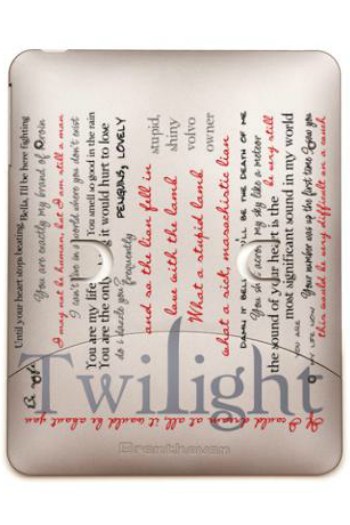 Until your heart stops beating, Bella, I'll be here fighting
You are exactly my brand of heroin
I may not be human, but I am still a man
I can't live in a world where you don't exist
You are my life
You smell so good in the rain
You are the only one it would hurt to lose
do i dazzle you?
frequently
PENGUINS, LOVELY
and so the lion fell in
love with the lamb
stupid,
shiny
volvo
owner
What a stupid lamb
what a sick, masochistic lion
DAMN IT BELLA YOU'LL BE THE DEATH OF ME
You shot across my sky like a meteor
be very still
the sound of your heart is the
most significant sound in my world
YOU ARE
MY LIFE NOW
Your number was up the first time I saw you
this would be very difficult on a couch
Twilight
If I could dream at all, it would be about you
Brenthaven